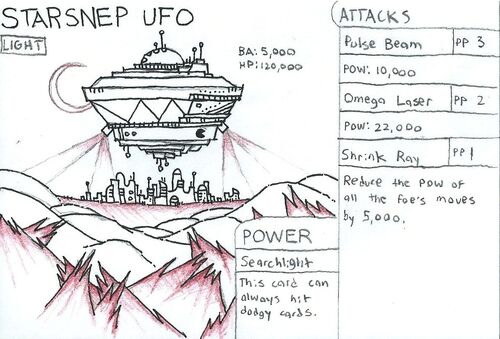 STARSNEP UFO
LIGHT
BA: 5,000
HP: 120,000
ATTACKS
Pulse Beam PP 3
POW: 10,000
Omega Laser PP 2
POW: 22,000
Shrink Ray PP 1
Reduce the POW of
all the foe's moves
by 5,000.
POWER
Searchlight
This card can
always hit
dodgy cards.